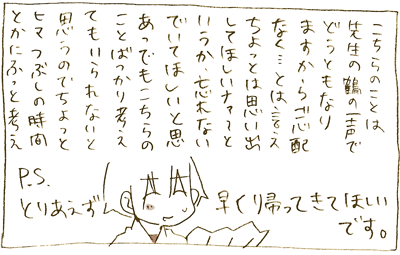 こちらのことは
先生の鶴の一声で
どうともなり
ますからご心配
なく…とは言え
ちょっとは思い出
してほしいナァ〜と
いうか、忘れない
でいてほしいと思
あっでもこちらの
ことばっかり考え
てもいられないと
思うのでちょっと
ヒマつぶしの時間
とかにふっと考え
P.S.
とりあえず
早くり帰ってきてほしい
です。